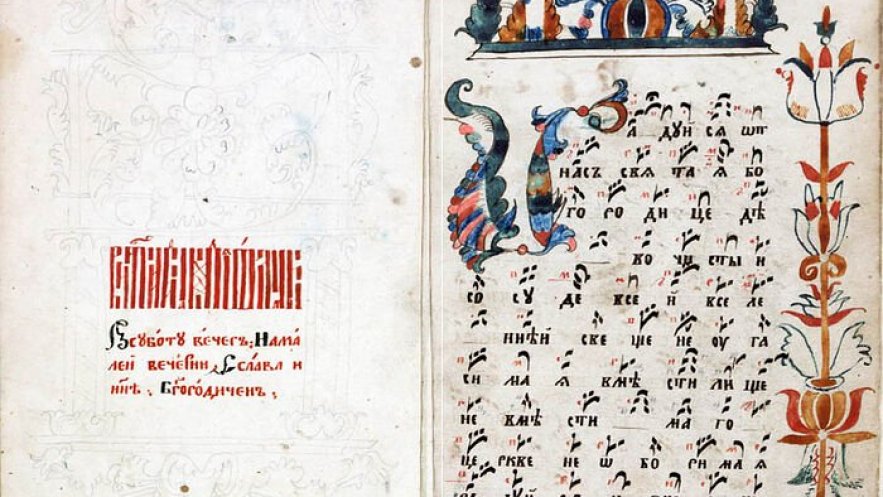 Всуботу вечеръ, Нама
леи вечерни, Слава, и
нн҃ѣ, Бг҃ородиченъ,
Ра дуи ся ѿ
насъ свя та я бо
го ро ди це дѣ
во чи сты и
со су де все й все ле
ннѣй све ще не оу га
си ма я вмѣ сти ли ще
не вмѣ сти ма го
це ркве не ѡ бо ри ма я